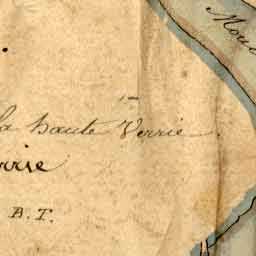 Mou
la haute Verrie
rrie
B.T.